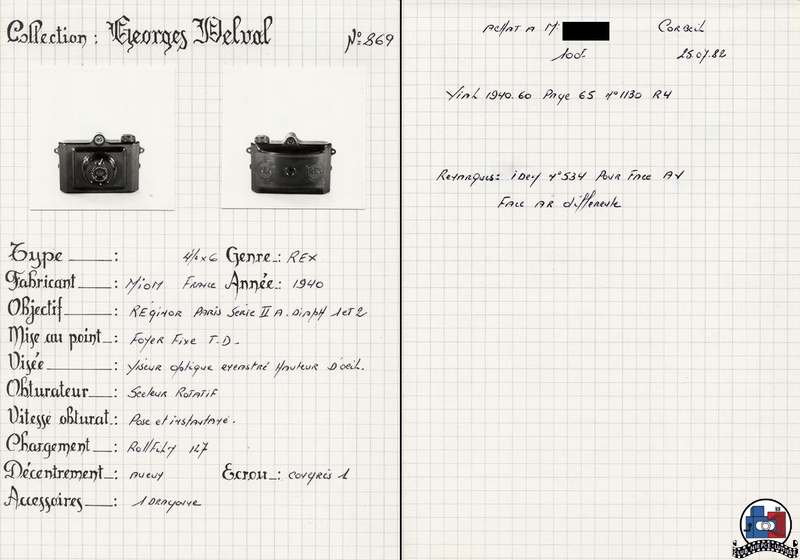 Collection : Georges Delval Nº 869
Type : 4½x6 Genre : REX
Fabricant : MIOM FRANCE Année : 1940
Objectif : REGINOR PARIS SERIE II A. DIAPH 1 ET 2
Mise au point : FOYER FIXE T.D.
Visée : Viseur optique HAUTEUR D'OEIL.
Obturateur : Secteur ROTATIF
Vitesse obturat. : Pose et instantané.
Chargement : Rollfilm 127
Décentrement : AUCUN Ecrou : CONGRES 1
Accessoires : 1 DRAGONNE
ACHAT A M. CORBEIL
100F 25.07.82
Vial 1940.60 Page 65 N°1130 R4
Remarques : iDEM N°534 POUR FACE AV
FACE AR différente